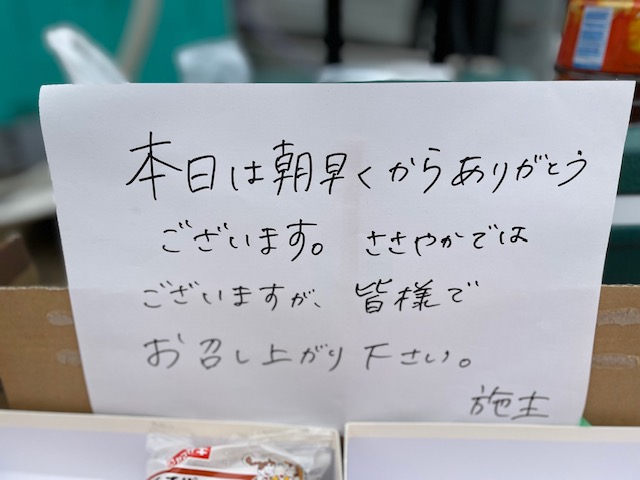 本日は朝早くからありがとう
ございます。ささやかでは
ございますが、皆様で
お召し上がり下さい。
施主